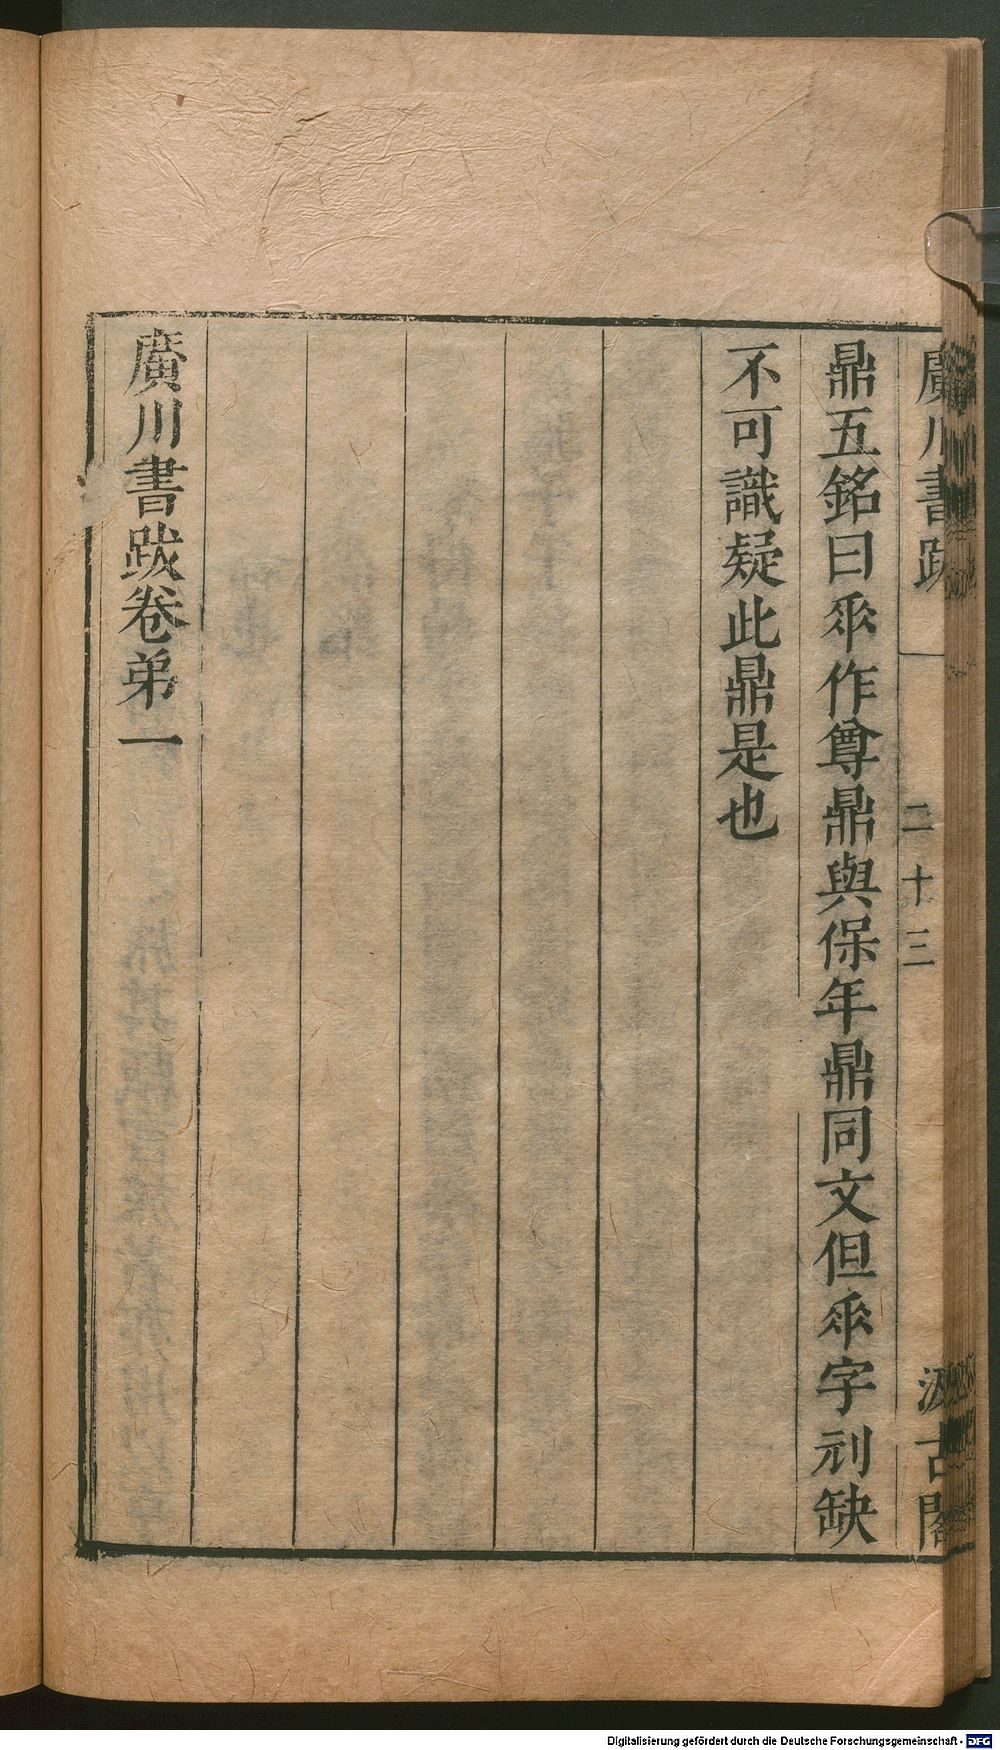 廣川書跋
二十三
汲古閣
鼎五銘曰乑作尊鼎與保年鼎同文但乑字刓缺
不可識疑此鼎是也
廣川書跋卷弟一
Digitalisierung gefördert durch die Deutsche Forschungsgemeinschaft - DFG